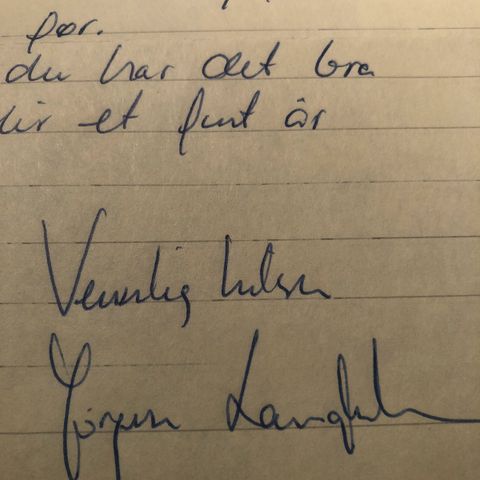 par.
du har det bra
blir et fint år
Vennlig hilsen
Jørgen